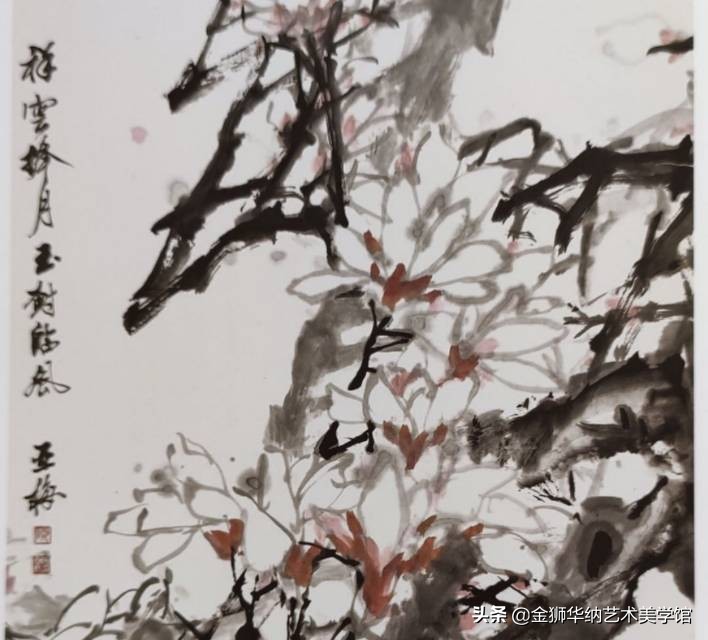 祥雲捧月玉树临风
亚梅
头条 @金狮华纳艺术美学馆